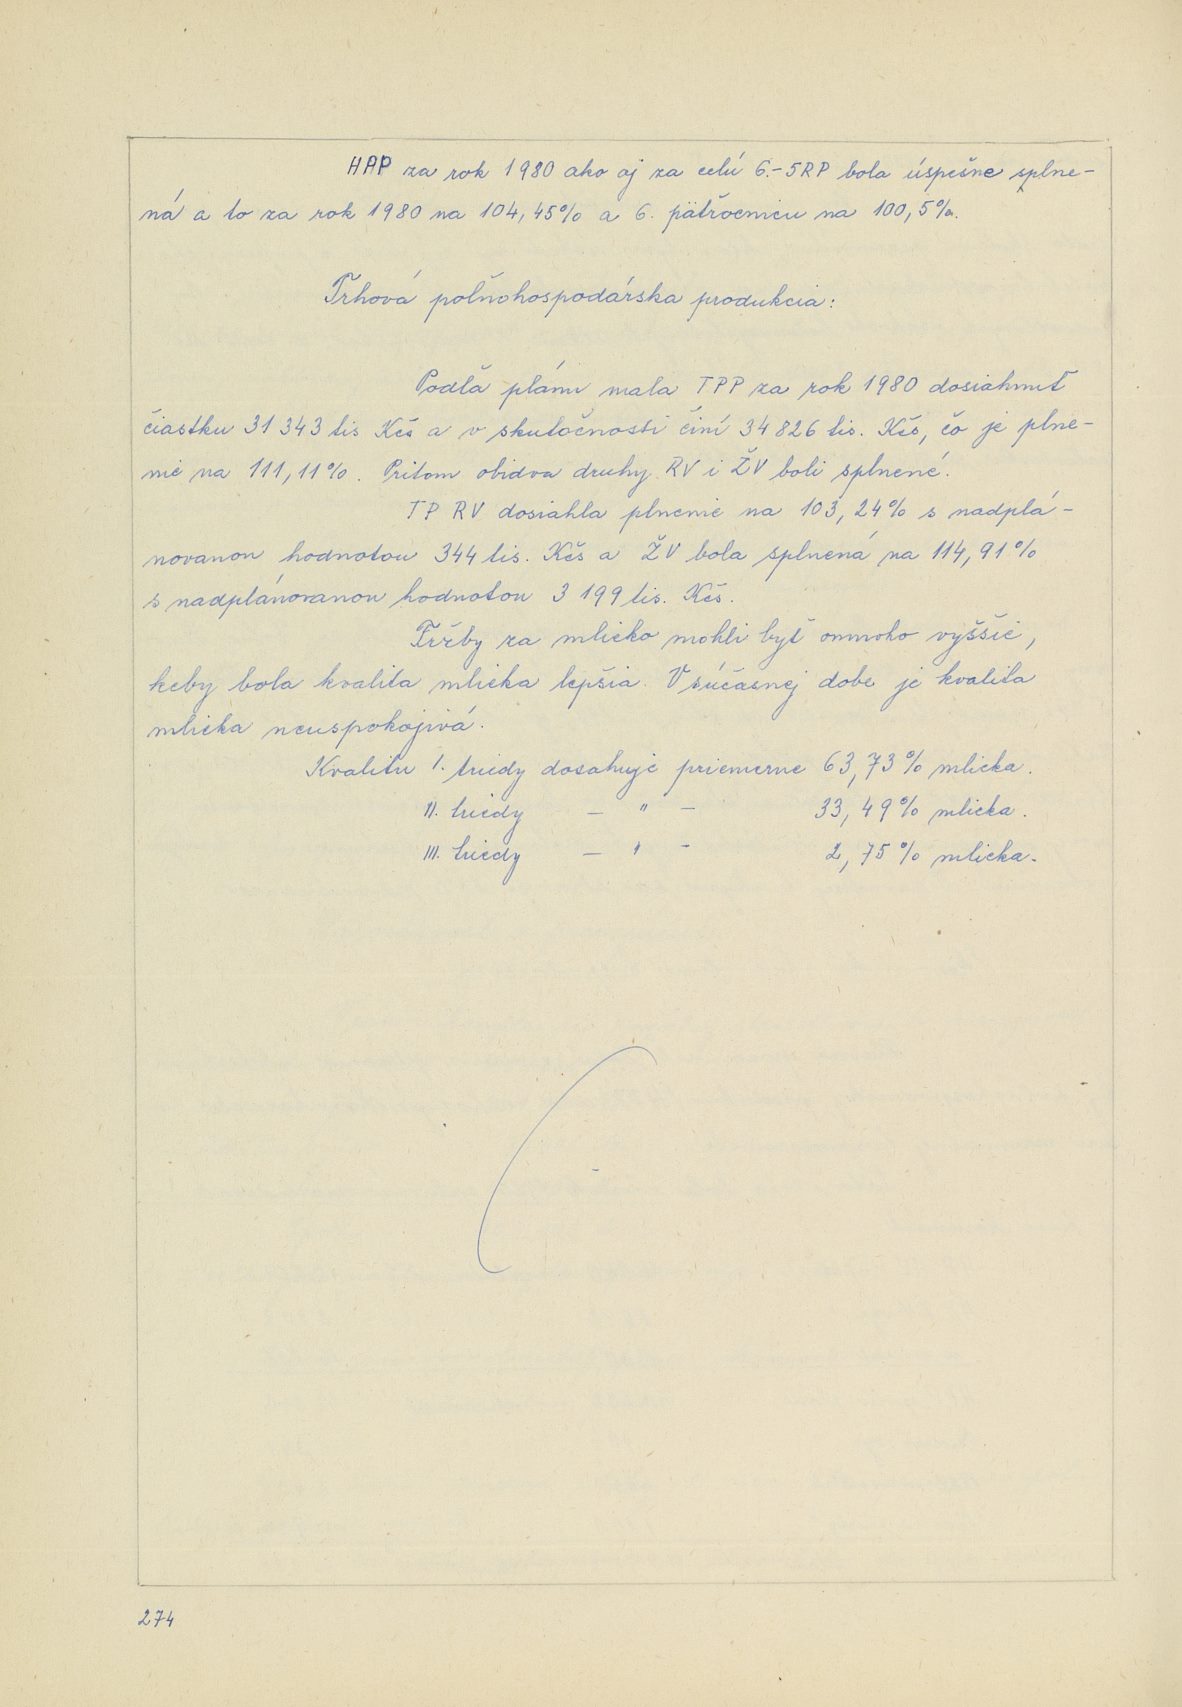 HAP za rok 1980 ako aj za celú 6.-5RP bola úspešne splne-
ná a to za rok 1980 na 104,45% a 6. päťročnicu na 100,5%.
Tŕhová poľnohospodárska produkcia:
Podľa plánu mala TPP za rok 1980 dosiahnuť
čiastku 31 343 tis Kčs a v skutočnosti činí 34 826 tis. Kčs, čo je plne-
nie na 111,11%. Pritom obidva druhy RV i ŽV boli splnené.
TP RV dosiahla plnenie na 103,24% s nadplá-
novanou hodnotou 344 tis. Kčs a ŽV bola splnená na 114,91%
s nadplánovanou hodnotou 3 199 tis. Kčs.
Tržby za mlieko mohli byť omnoho vyššie,
keby bola kvalita mlieka lepšia. V súčasnej dobe je kvalita
mlieka neuspokojivá.
Kvalitu I. triedy dosahuje priemerne 63,73% mlieka.
II. triedy — " — 33,49% mlieka.
III. triedy — " — 2,75% mlieka.
274